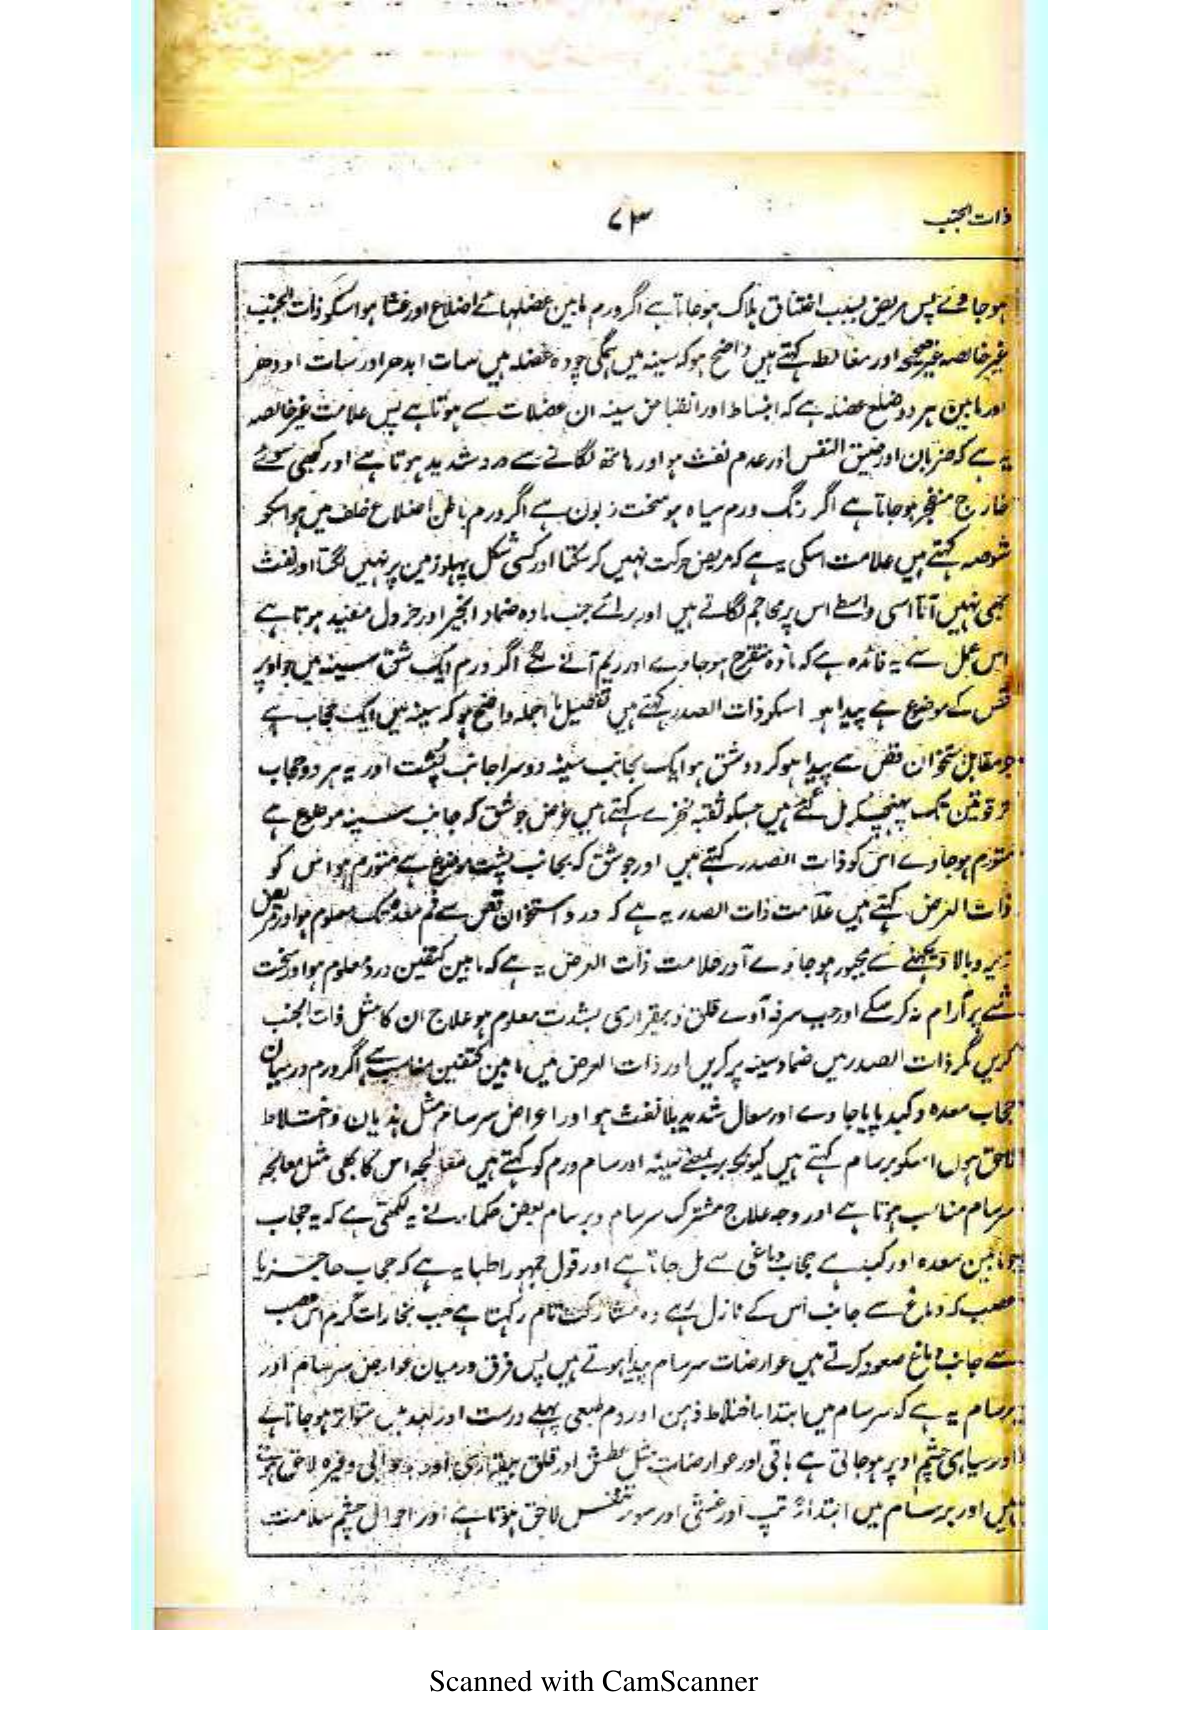 ذات الجنب
۷۳
ہوجاوے پس مریض بسبب اختناق ہلاک ہوجاتا ہے اگر ورم مابین عضلہائے اضلاع اور غشا ہو اسکو ذات الجنب
غیر خالصہ غیر صحیحہ اور مغالطہ کہتے ہیں واضح ہو کہ سینہ میں ہمگی چودہ عضلہ ہیں سات ایدھر اور سات اودھر
اور مابین ہر دو ضلع عضلہ ہے کہ انبساط اور انقباض سینہ ان عضلات سے ہوتا ہے پس علامت غیر خالصہ
یہ ہے کہ ضربان اور ضیق النفس اور عدم نفث ہو اور ہاتھ لگانے سے درد شدید ہوتا ہے اور کبھی سوئے
خارج منفجر ہوجاتا ہے اگر رنگ ورم سیاہ ہو سخت زبون ہے اگر ورم باطن اضلاع خلف میں ہو اسکو
شوصہ کہتے ہیں علامت اسکی یہ ہے کہ مریض حرکت نہیں کرسکتا اور کسی شکل پہلو زمین پر نہیں لگتا اور نفث
بھی نہیں آتا اسی واسطے اس پر محاجم لگاتے ہیں اور برائے جذب مادہ ضماد انجیر اور خردل مفید ہوتا ہے
اس عمل سے یہ فائدہ ہے کہ مادہ متقرح ہوجاوے اور ریم آنے لگے اگر ورم ایک شق سینہ میں جو اوپر
قص کے موضوع ہے پیدا ہو اسکو ذات الصدر کہتے ہیں تفصیل با جملہ واضح ہو کہ سینہ میں ایک حجاب ہے
جو مقابل ستخوان قص سے پیدا ہوکر دو شق ہو ایک بجانب سینہ دوسرا جانب پشت اور یہ ہر دو حجاب
ترقوتین تک پہنچکر مل گئے ہیں جسکو ثقبہ نحر کہتے ہیں غرض جو شق کہ جانب سینہ موضوع ہے
متورم ہوجاوے اس کو ذات الصدر کہتے ہیں اور جو شق کہ بجانب پشت موضوع ہے متورم ہو اس کو
ذات العرض کہتے ہیں علامت ذات الصدر یہ ہے کہ درد استخوان قص سے فم معدہ تک معلوم ہو اور مریض
زیر و بالا دیکھنے سے مجبور ہوجاوے اور علامت ذات العرض یہ ہے کہ مابین کتفین درد معلوم ہو اور سخت
شئے پر آرام نہ کرسکے اور جب سرفہ آوے قلق و بیقراری بشدت معلوم ہو علاج ان کا مثل ذات الجنب
کریں مگر ذات الصدر میں ضماد سینہ پر کریں اور ذات العرض میں مابین کتفین مناسب ہے اگر ورم درمیان
حجاب معدہ و کبد پایا جاوے اور سعال شدید بلا نفث ہو اور اعراض سرسام مثل ہذیان و اختلاط
لاحق ہوں اسکو برسام کہتے ہیں کیونکہ بر بمعنے سینہ اور سام ورم کو کہتے ہیں معالجہ اس کا بھی مثل معالجہ
سرسام مناسب ہوتا ہے اور وجہ علاج مشترک سرسام و برسام بعض حکما نے یہ لکھی ہے کہ یہ حجاب
جو مابین معدہ اور کبد ہے حجاب دماغی سے مل جاتا ہے اور قول جمہور اطبا یہ ہے کہ حجاب حاجز یا
عصب کہ دماغ سے جانب اس کے نازل ہے وہ مشارکت تام رکہتا ہے جب بخارات گرم اس عصب
سے جانب دماغ صعود کرتے ہیں عوارضات سرسام پیدا ہوتے ہیں پس فرق درمیان عوارض سرسام اور
برسام یہ ہے کہ سرسام میں ابتداءً اختلاط ذہن اور دم طبعی پہلے درست اور بعد میں متواتر ہوجاتا ہے
اور سیاہی چشم اوپر ہوجاتی ہے باقی اور عوارضات مثل عطش اور قلق بیقراری اور وغیرہ لاحق ہوتے
ہیں اور برسام میں ابتداءً تپ اور غشی اور سوء تنفس لاحق ہوتا ہے اور احوال چشم سلامت
Scanned with CamScanner